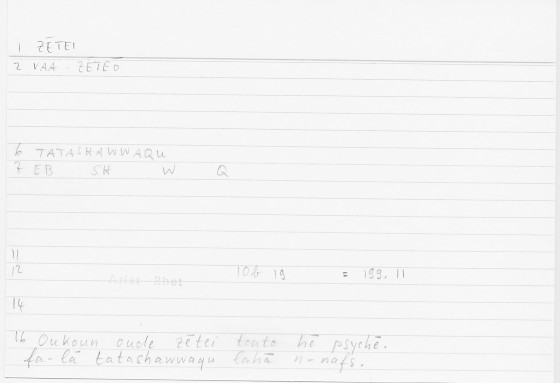 1 ZĒTEI
2 VAA - ZĒTEŌ
6 TATASHAWWAQU
7 EB SH W Q
11
12 Arist Rhet 10b 19 = 199.11
14
16 Oukoun oude zētei touto hē psychē.
fa-lā tatashawwaqu lahā n-nafs.